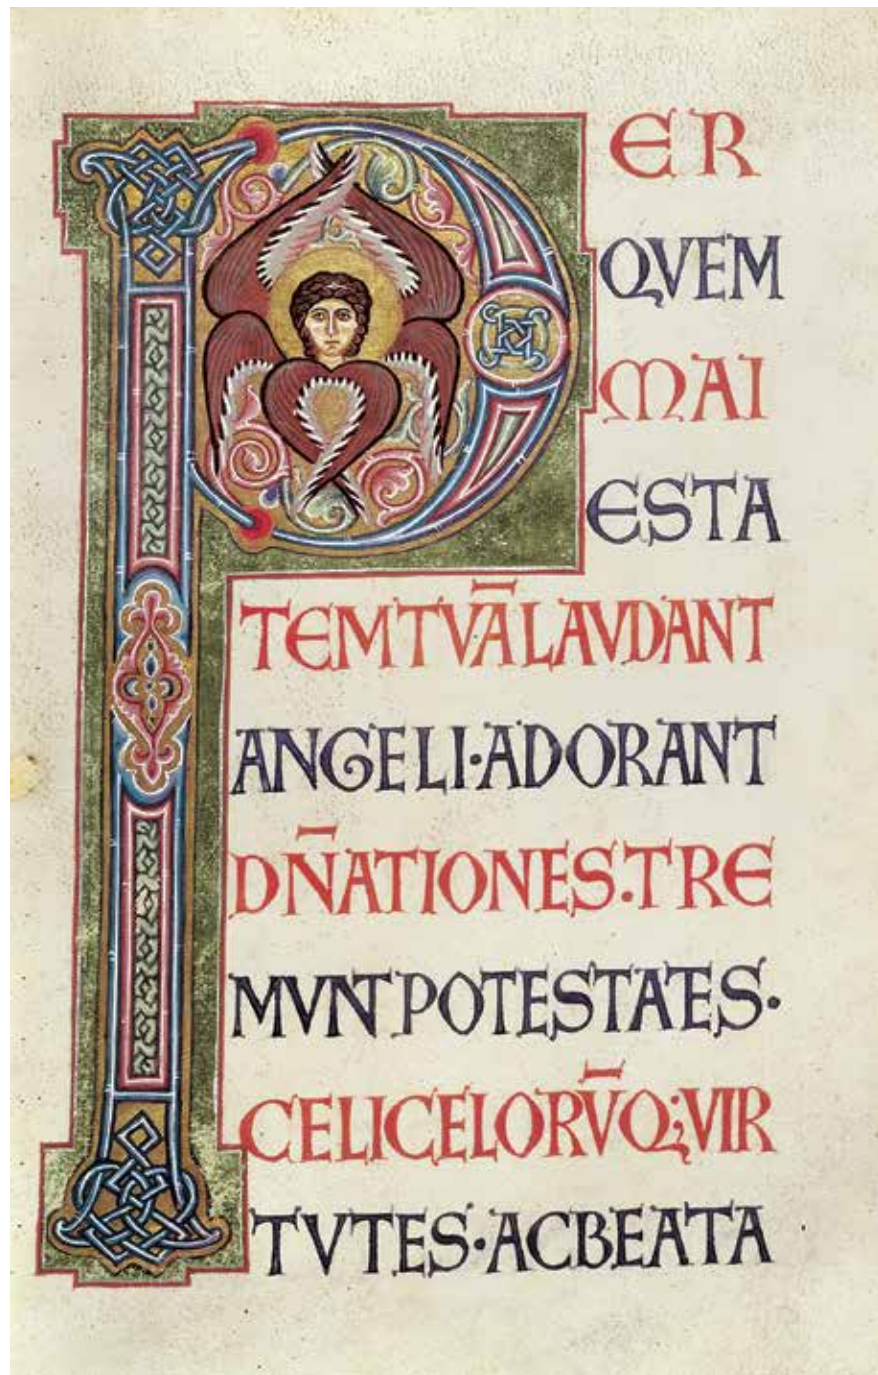 PER
QVEM
MAI
ESTA
TEMTVĀLAVDANT
ANGELI·ADORANT
DN̄ATIONES.TRE
MVNT POTESTATES·
CELICELORV̄Q;VIR
TVTES·ACBEATA